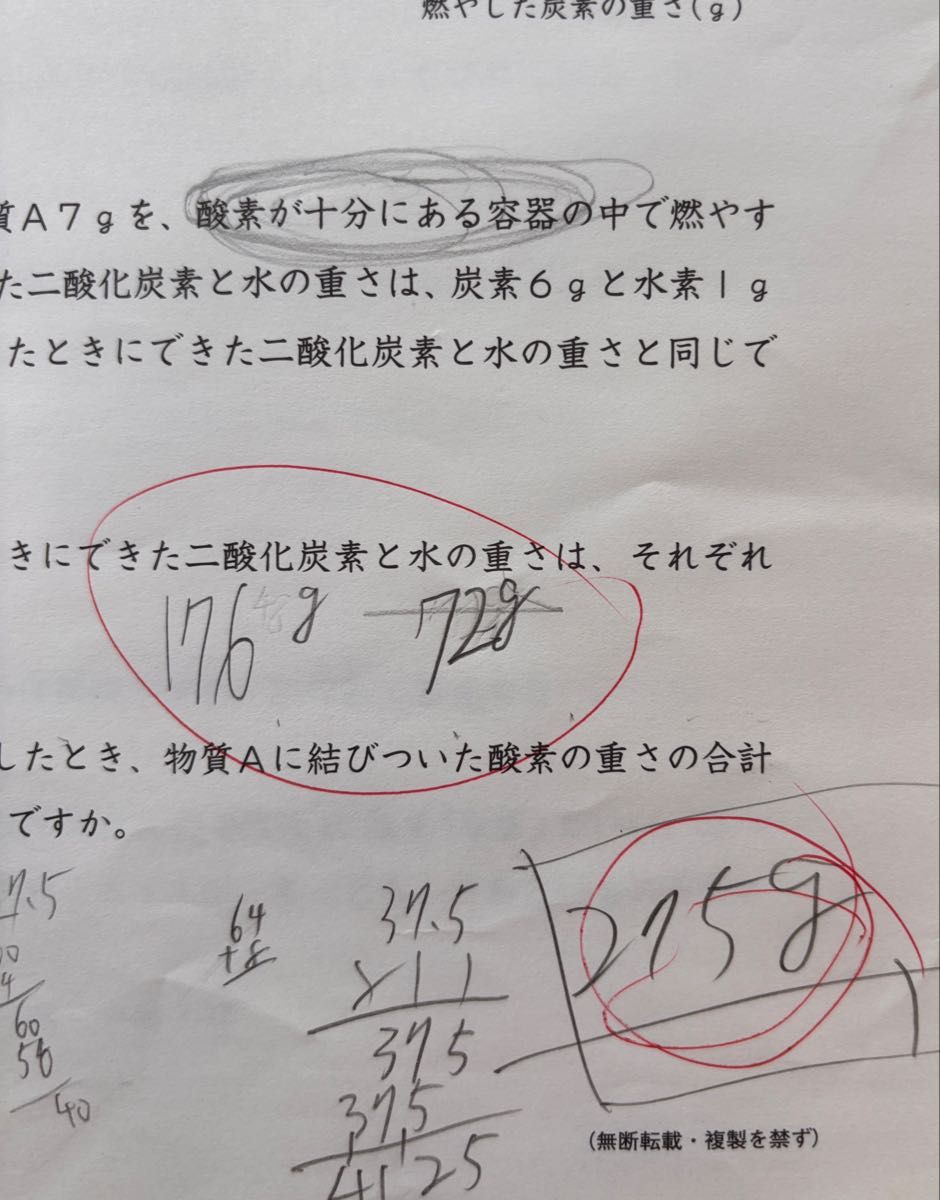 燃やした炭素の重さ(g)
質A7gを、酸素が十分にある容器の中で燃やす
た二酸化炭素と水の重さは、炭素6gと水素1g
たときにできた二酸化炭素と水の重さと同じで
きにできた二酸化炭素と水の重さは、それぞれ
176g 72g
したとき、物質Aに結びついた酸素の重さの合計
ですか。
7.5
64
+8
37.5
×11
375
375
4125
60
56
40
275g
(無断転載・複製を禁ず)